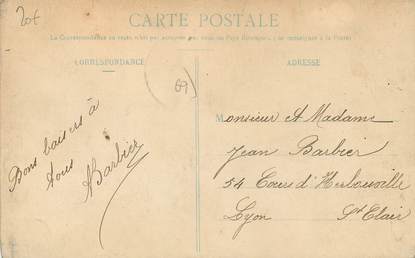 20f
CARTE POSTALE
La Correspondance au recto n'est pas acceptée par tous les Pays étrangers (se renseigner à la Poste)
CORRESPONDANCE
ADRESSE
69
Bons baisers à
tous
ABarbier
Monsieur et Madame
Jean Barbier
54 Cours d'Herbouville
Lyon St Clair